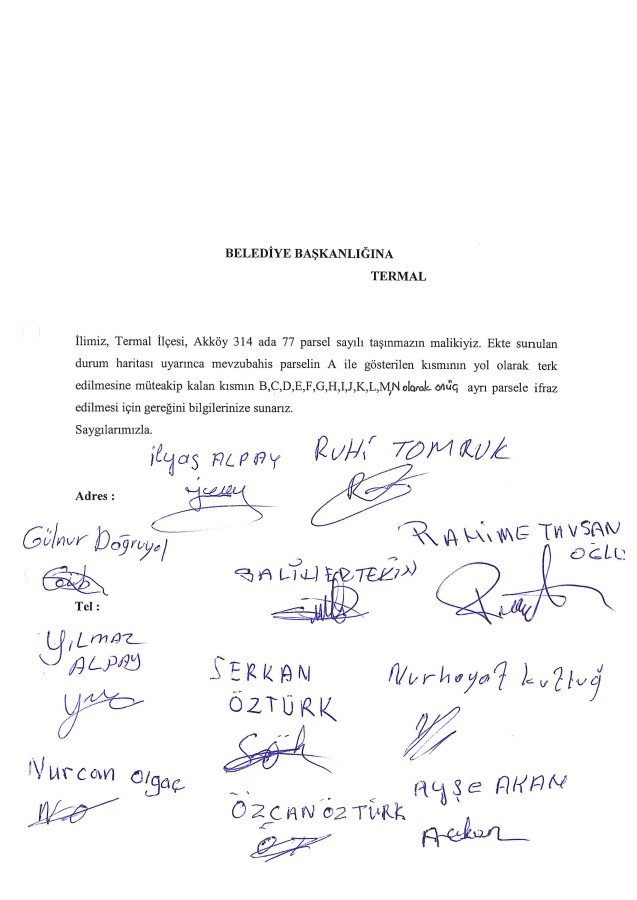 BELEDİYE BAŞKANLIĞINA
TERMAL
İlimiz, Termal İlçesi, Akköy 314 ada 77 parsel sayılı taşınmazın malikiyiz. Ekte sunulan
durum haritası uyarınca mevzubahis parselin A ile gösterilen kısmının yol olarak terk
edilmesine müteakip kalan kısmın B,C,D,E,F,G,H,I,J,K,L,M,N olarak onüç ayrı parsele ifraz
edilmesi için gereğini bilgilerinize sunarız.
Saygılarımızla.
ilyas ALPAY RUHİ TOMRUK
Adres :
Gülnur Doğruyol RAHİME TAVŞAN
OĞLU
SALİH ERTEKİN
Tel :
YILMAZ
ALPAY
SERKAN
ÖZTÜRK
Nurhayat kutluğ
Nurcan Olgaç
ÖZCAN ÖZTÜRK
AYŞE AKAN
Aakan